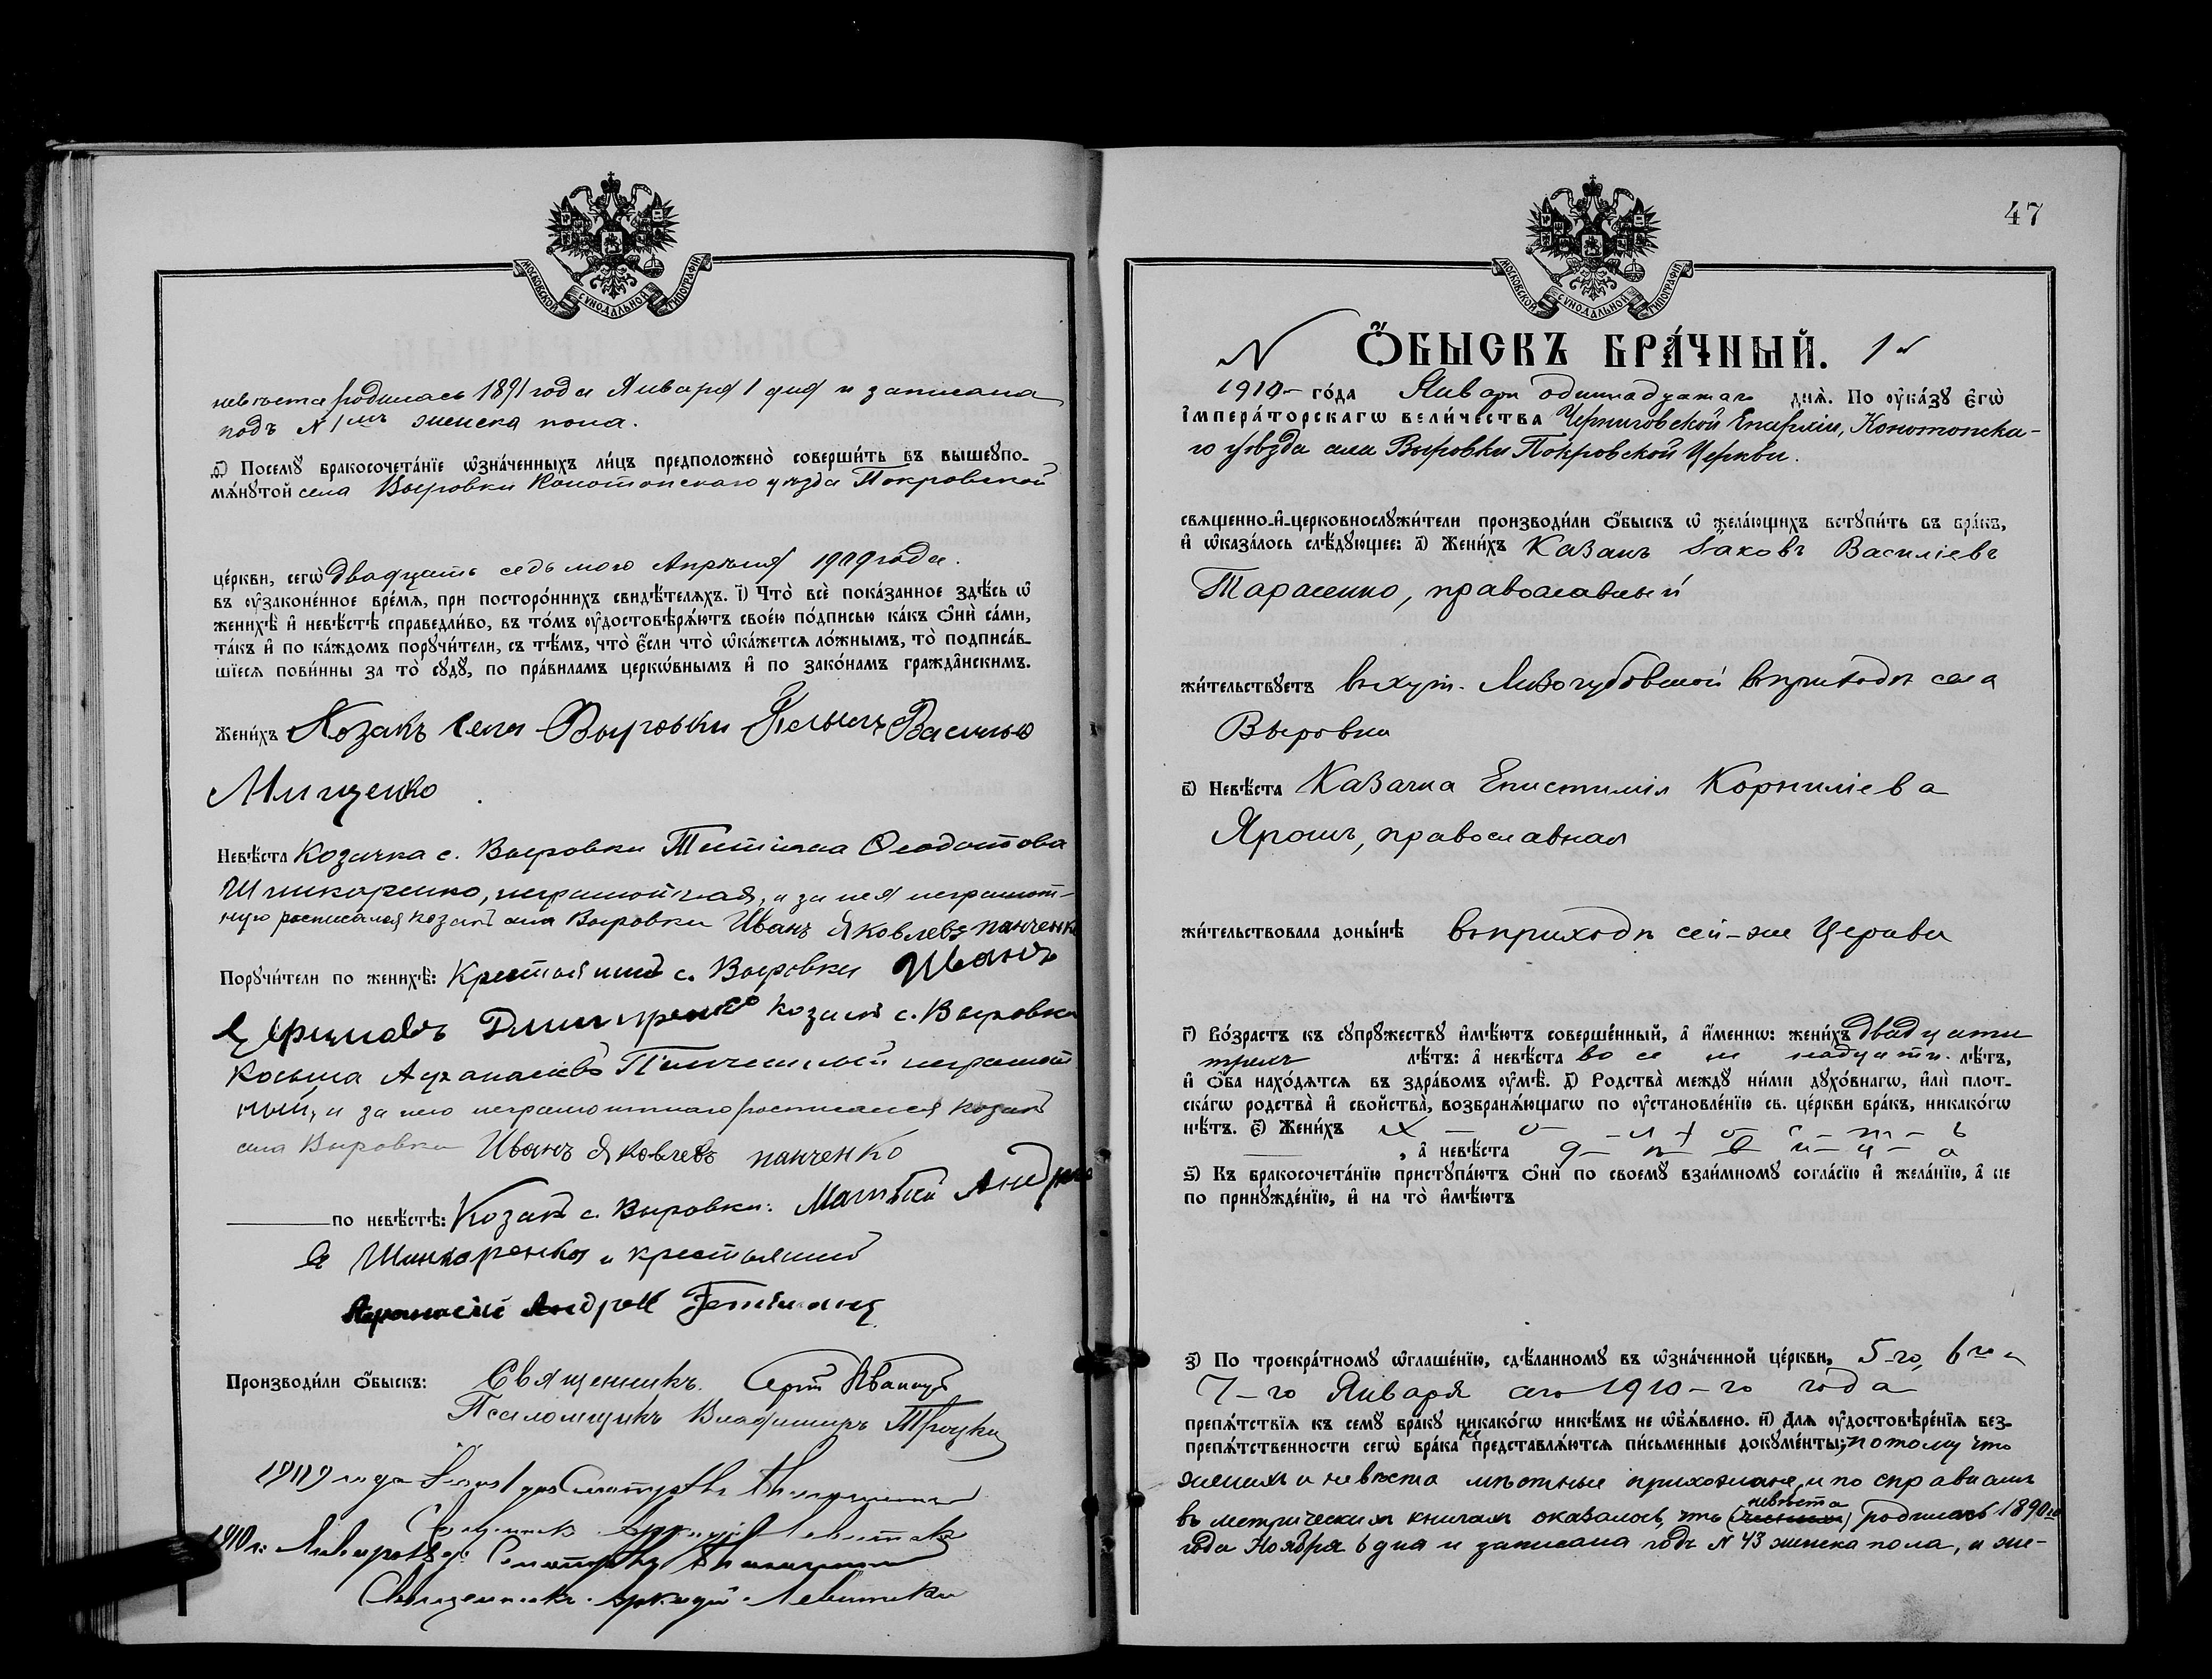 МОСКОВСКОЙ СѴНОДАЛЬНОЙ ТИПОГРАФІИ
невѣста родилась 1891 года Января 1 дня и записана
подъ N 1мъ женска пола.
д҃) Посемꙋ бракосочета́нїе ѡ҆зна́ченныхъ ли́цъ предположено̀ соверши́ть въ вышеꙋпо-
мѧ́нꙋтой села Выровки Конотопскаго уѣзда Покровской
це́ркви, сегѡ̀ двадцать седьмого Апрѣля 1909 года.
въ ᲂу҆законе́нное вре́мѧ, при посторо́ннихъ свидѣ́телѧхъ. і҃) Что̀ всѐ пока́занное здѣ́сь ѡ҆
женихѣ̀ и҆ невѣ́стѣ справедли́во, въ то́мъ ᲂу҆достовѣрѧ́ютъ свое́ю по́дписью ка́къ ѻ҆нѝ са́ми,
та́къ и҆ по ка́ждомъ порꙋчи́тели, съ тѣ́мъ, что̀ є҆́сли что̀ ѡ҆ка́жетсѧ ло́жнымъ, то̀ подписа́в-
шїесѧ пови́нны за то̀ сꙋдꙋ̀, по пра́виламъ церкѡ́внымъ и҆ по зако́намъ гражда̂нскимъ.
Жени́хъ Козакъ села Выровки Василью
Мищенко
Невѣ́ста Козачка с. Выровки Ѳеодотова
Шинкаренко, неграмотная, а за нея неграмот-
ную росписался козакъ села Выровки Иванъ Яковлевъ панченко
Порꙋчи́тели по женихѣ̀: Крестьянинъ с. Выровки Иванъ
козакъ с. Выровки
Косьма Аѳанасіевъ неграмот
ный, и за него неграмотнаго росписался козакъ
села Выровки Иванъ Яковлевъ панченко
по невѣ́стѣ: Козакъ с. Выровки: Матвѣй Андре
в Шинкаренко и крестьянинъ
Аѳанасій Андрее
Производи́ли ѻ҆́быскъ: Священникъ
Псаломщикъ Владимиръ Троцкій
1909 года
Священникъ Аркадій Левитскій
1910 г.
Священникъ Аркадій Левитскій
47
МОСКОВСКОЙ СѴНОДАЛЬНОЙ ТИПОГРАФІИ
N Ѻ҆́БЫСКЪ БРА́ЧНЫЙ. 1й
1910 го́да Января одиннадцатаго днѧ̀. По ᲂу҆ка́зꙋ є҆гѡ̀
і҆мпера́торскагѡ вели́чества Черниговской Епархіи, Конотопска-
го уѣзда села Выровки Покровской Церкви.
свѧщенно-и҆-церковнослꙋжи́тели производи́ли ѻ҆́быскъ ѡ҆ жела́ющихъ встꙋпи́ть въ бра́къ,
и҆ ѡ҆каза́лось слѣ́дꙋющее: а҃) Жени́хъ Казакъ Іаковъ Василіевъ
Тарасенко, православный
жи́тельствꙋетъ въ хут. Лизогубовской въ приходѣ села
Выровки
в҃) Невѣ́ста Казачка Епистимія Корниліева
Ярошъ, православная
жи́тельствовала доны́нѣ въ приходѣ сей-же Церкви
г҃) Во́зрастъ къ сꙋпрꙋ́жествꙋ и҆мѣ́ютъ соверше́нный, а҆ и҆́меннѡ: жени́хъ двадцати
трехъ лѣ́тъ: а҆ невѣ́ста восемнадцати. лѣ́тъ,
и҆ ѻ҆́ба нахо́дѧтсѧ въ здра́вомъ ᲂу҆мѣ̀. д҃) Родства̀ междꙋ ни́ми дꙋхо́внагѡ, и҆лѝ плот-
ска́гѡ родства̀ и҆ сво́йства̀, возбранѧ́ющагѡ по ᲂу҆становле́нїю св. це́ркви бра́къ, никако́гѡ
нѣ́тъ. є҃) Жени́хъ х - о - л - о с - т - ъ
, а҆ невѣ́ста д - ѣ - в и - ц - а
ѕ҃) Къ бракосочета́нїю пристꙋпа́ютъ ѻ҆нѝ по своемꙋ̀ взаи́мномꙋ согла́сїю и҆ жела́нїю, а҆ не
по принꙋжде́нїю, и҆ на то̀ и҆мѣ́ютъ
з҃) По троекра́тномꙋ ѡ҆глаше́нїю, сдѣ́ланномꙋ въ ѡ҆зна́ченной це́ркви, 5-го, 6го и
7-го Января сего 1910-го года
препѧ́тствїѧ къ семꙋ̀ бра́кꙋ никако́гѡ никѣ́мъ не ѡ҆бъѧ́влено. и҃) Длѧ ᲂу҆достовѣре́нїѧ без-
препѧ́тственности сегѡ̀ бра́ка не представлѧ́ютсѧ пи́сьменные докꙋме́нты; потому что
женихъ и невѣста мѣстные прихожане, и по справкамъ
въ метрическихъ книгахъ оказалось, что (женихъ) невѣста родилась 1890го
года Ноября 6 дня и записана подъ N 43 женска пола, а же-